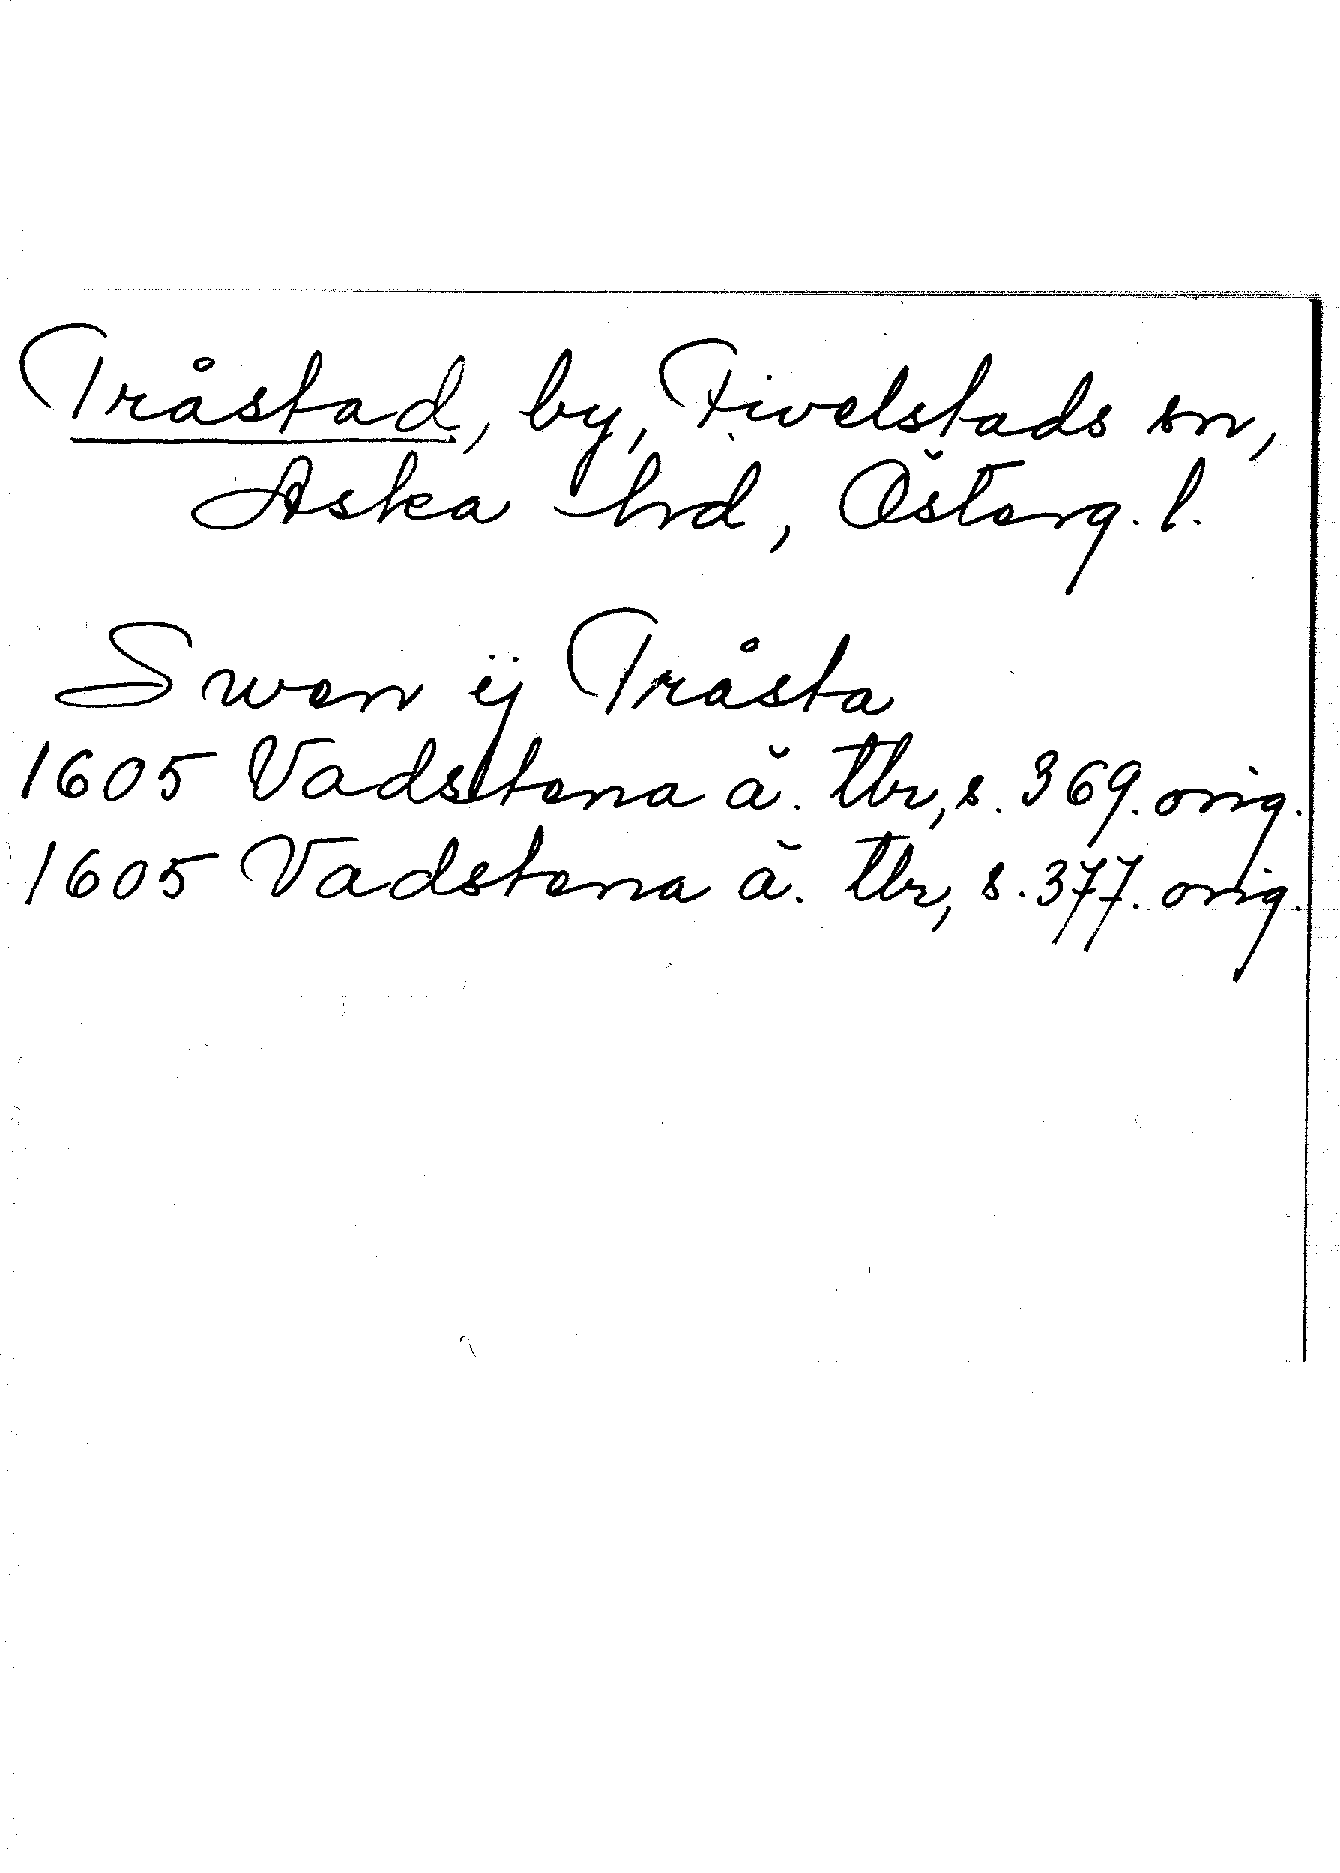 Tråstad, by, Fivelstads sn,
Aska hrd, Österg. l.
Swen ij Tråsta
1605 Vadstena ä. tbr, s. 369. orig.
1605 Vadstena ä. tbr, s. 377. orig.